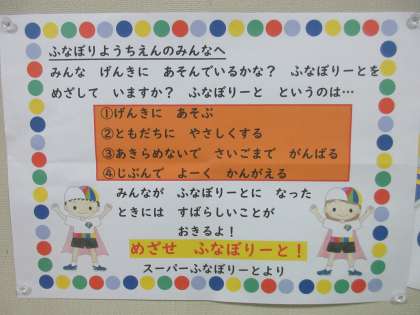 ふなぼりようちえんのみんなへ
みんな　げんきに　あそんでいるかな？　ふなぼりーとを
めざして　いますか？　ふなぼりーと　というのは…
①げんきに　あそぶ
②ともだちに　やさしくする
③あきらめないで　さいごまで　がんばる
④じぶんで　よーく　かんがえる
みんなが　ふなぼりーとに　なった
ときには　すばらしいことが
おきるよ！
めざせ　ふなぼりーと！
スーパーふなぼりーとより